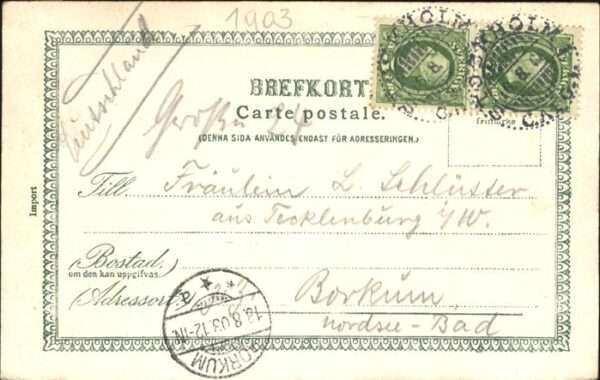 1903
Deutschland
STOCKHOLM
STOCKHOLM 1
BREFKORT
Carte postale.
(DENNA SIDA ANVÄNDES ENDAST FÖR ADRESSERINGEN.)
frimärke
Import
Till Fräulein L. Schlüter
aus Tecklenburg i/W.
(Bostad,
om den kan uppgifvas.)
Adressort: Borkum
Nordsee-Bad
BORKUM
13.8.03.12-1N